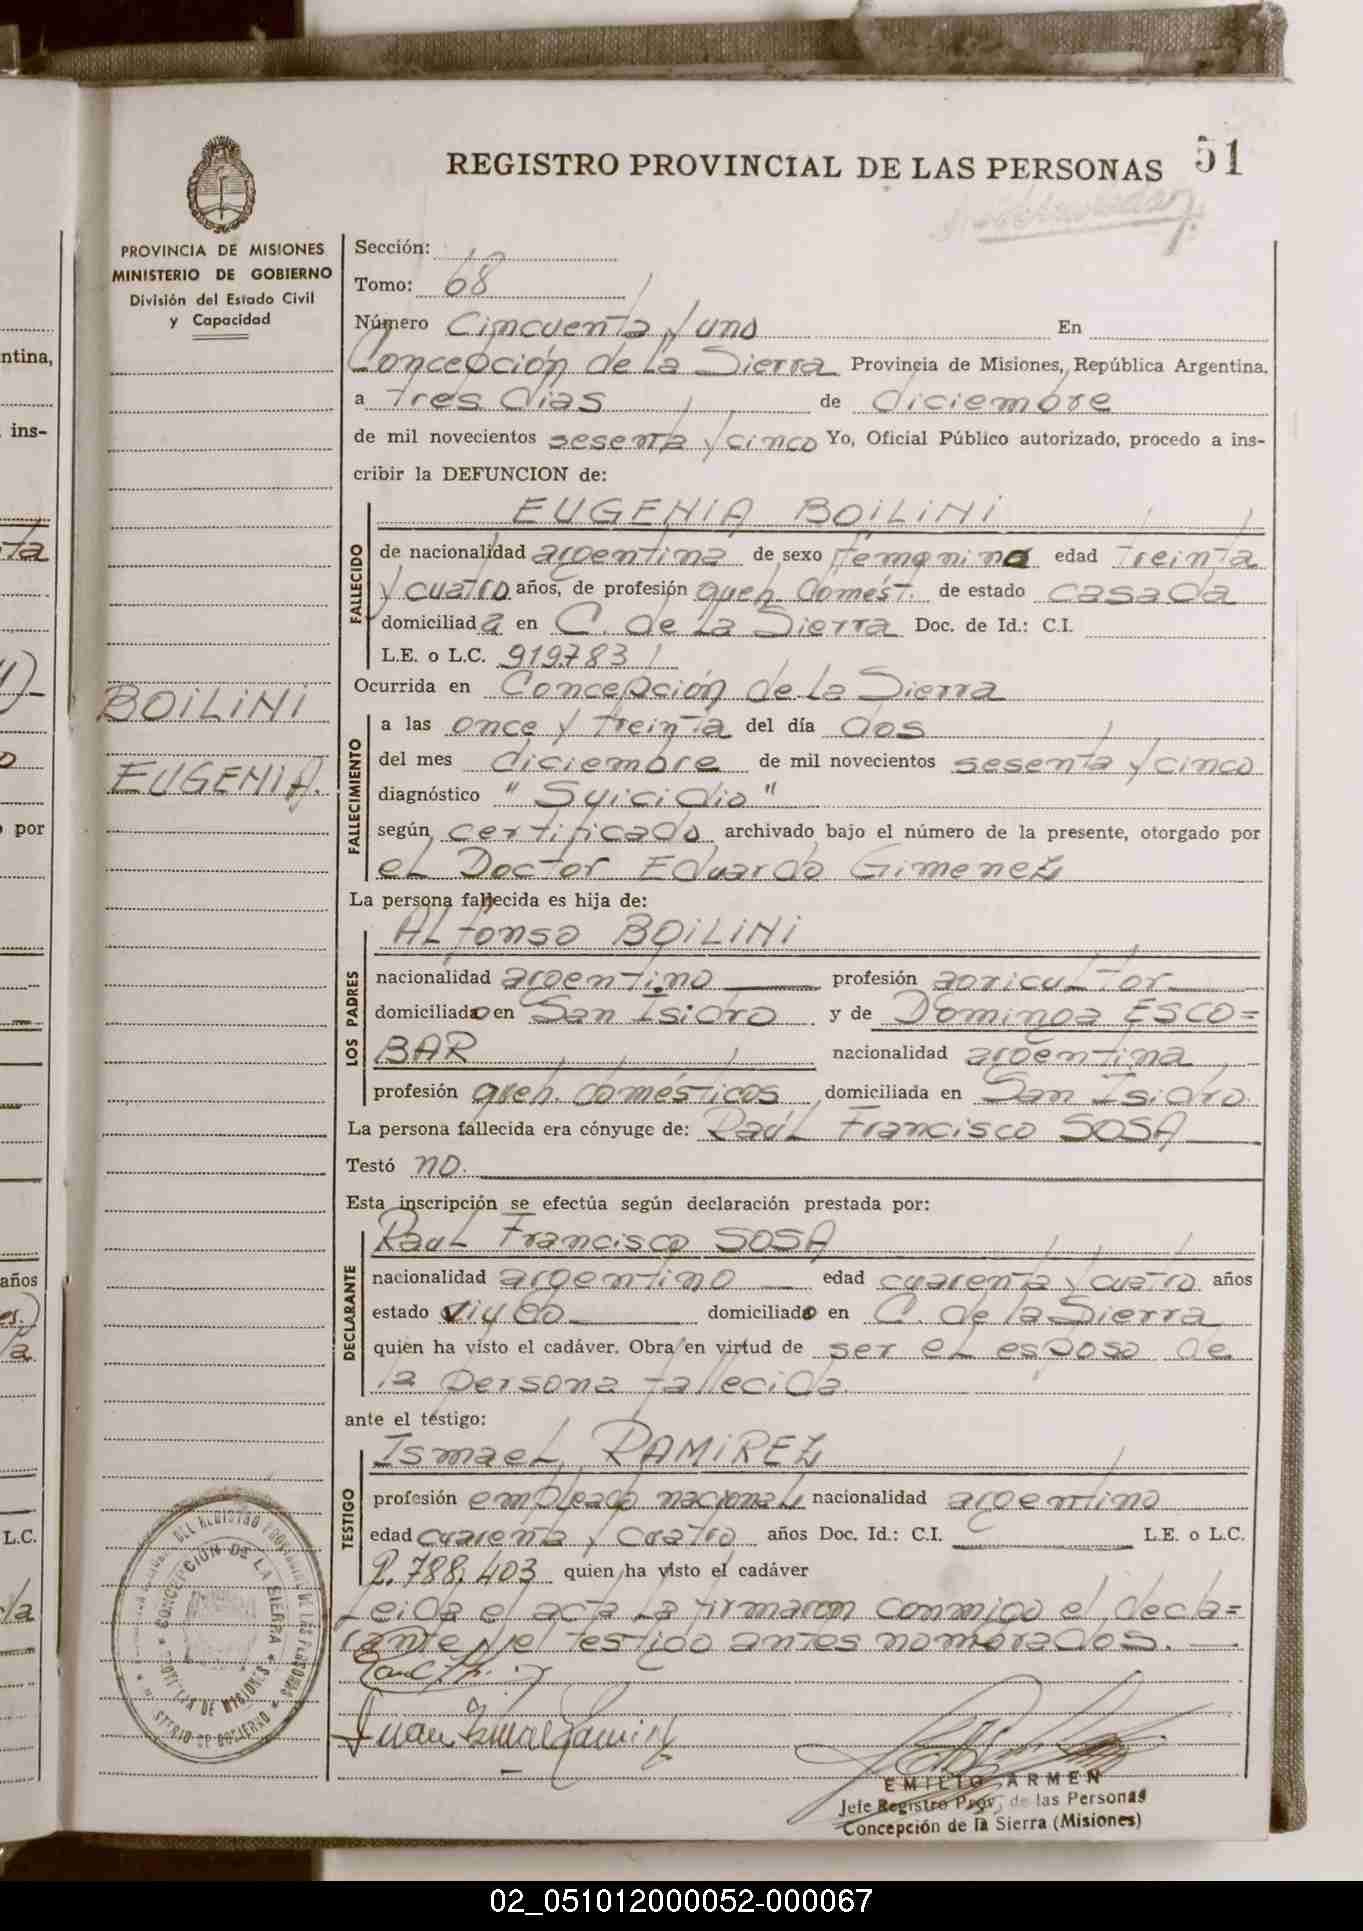 51
REGISTRO PROVINCIAL DE LAS PERSONAS
PROVINCIA DE MISIONES
MINISTERIO DE GOBIERNO
División del Estado Civil
y Capacidad
Sección:
Tomo: 68
Número Cincuenta y uno En
Concepción de la Sierra Provincia de Misiones, República Argentina.
a tres dias de diciembre
de mil novecientos sesenta y cinco Yo, Oficial Público autorizado, procedo a ins-
cribir la DEFUNCION de:
EUGENIA BOiLiNi
FALLECIDO
de nacionalidad argentina de sexo femenino edad treinta
y cuatro años, de profesión queh. domést. de estado casada
domiciliada en C. de la Sierra Doc. de Id.: C.I.
L.E. o L.C. 919.783
Ocurrida en Concepción de la Sierra
BOiLiNi
EUGENIA.
FALLECIMIENTO
a las once y treinta del día dos
del mes diciembre de mil novecientos sesenta y cinco
diagnóstico "Suicidio"
según certificado archivado bajo el número de la presente, otorgado por
el Doctor Eduardo Gimenez
La persona fallecida es hija de:
Alfonso BOiLiNi
LOS PADRES
nacionalidad argentino profesión agricultor
domiciliado en San Isidro y de Dominga ESCO=
BAR nacionalidad argentina
profesión queh. domésticos domiciliada en San Isidro.
La persona fallecida era cónyuge de: Raúl Francisco SOSA
Testó no.
Esta inscripción se efectúa según declaración prestada por:
Raul Francisco SOSA
DECLARANTE
nacionalidad argentino edad cuarenta y cuatro años
estado viudo domiciliado en C. de la Sierra
quien ha visto el cadáver. Obra en virtud de ser el esposo de
la persona fallecida.
ante el testigo:
Ismael RAMIREZ
TESTIGO
profesión empleado nacional nacionalidad argentino
edad cuarenta y cuatro años Doc. Id.: C.I. L.E. o L.C.
2.788.403 quien ha visto el cadáver
Leida el acta la firmaron conmigo el decla=
rante y el testigo antes nombrados.
Juan Ismael Ramirez
CONCEPCION DE LA SIERRA
EMILIO ARMEN
Jefe Registro Prov. de las Personas
Concepción de la Sierra (Misiones)
ntina,
ins-
por
años
L.C.
02_051012000052-000067